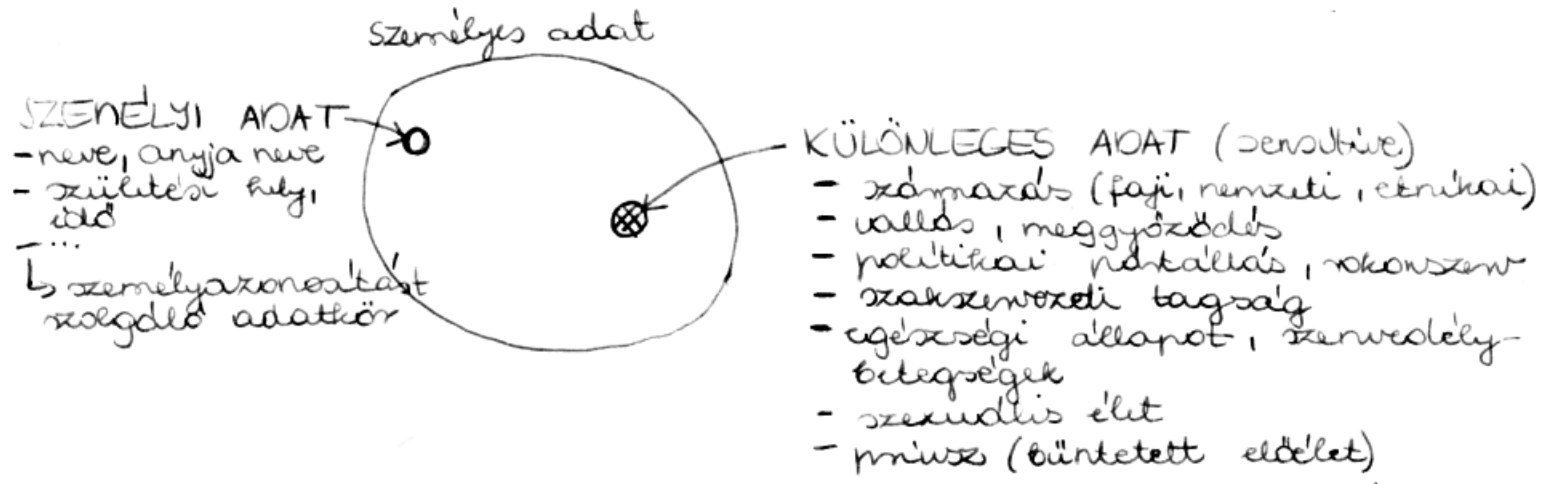 személyes adat
SZEMÉLYI ADAT
- neve, anyja neve
- születési hely,
idő
- ...
↳ személyazonosítást
szolgáló adatkör
KÜLÖNLEGES ADAT (sensitive)
- származás (faji, nemzeti, etnikai)
- vallás, meggyőződés
- politikai pártállás, rokonszenv
- szakszervezeti tagság
- egészségi állapot, szenvedély-
betegségek
- szexuális élet
- priusz (büntetett előélet)